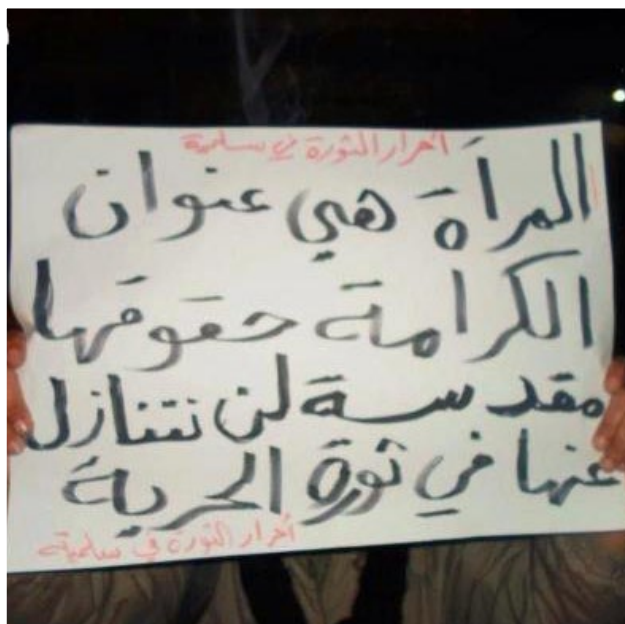 أحرار الثورة في سلمية
المرأة هي عنوان
الكرامة حقوقها
مقدسة لن نتنازل
عنها في ثورة الحرية
أحرار الثورة في سلمية